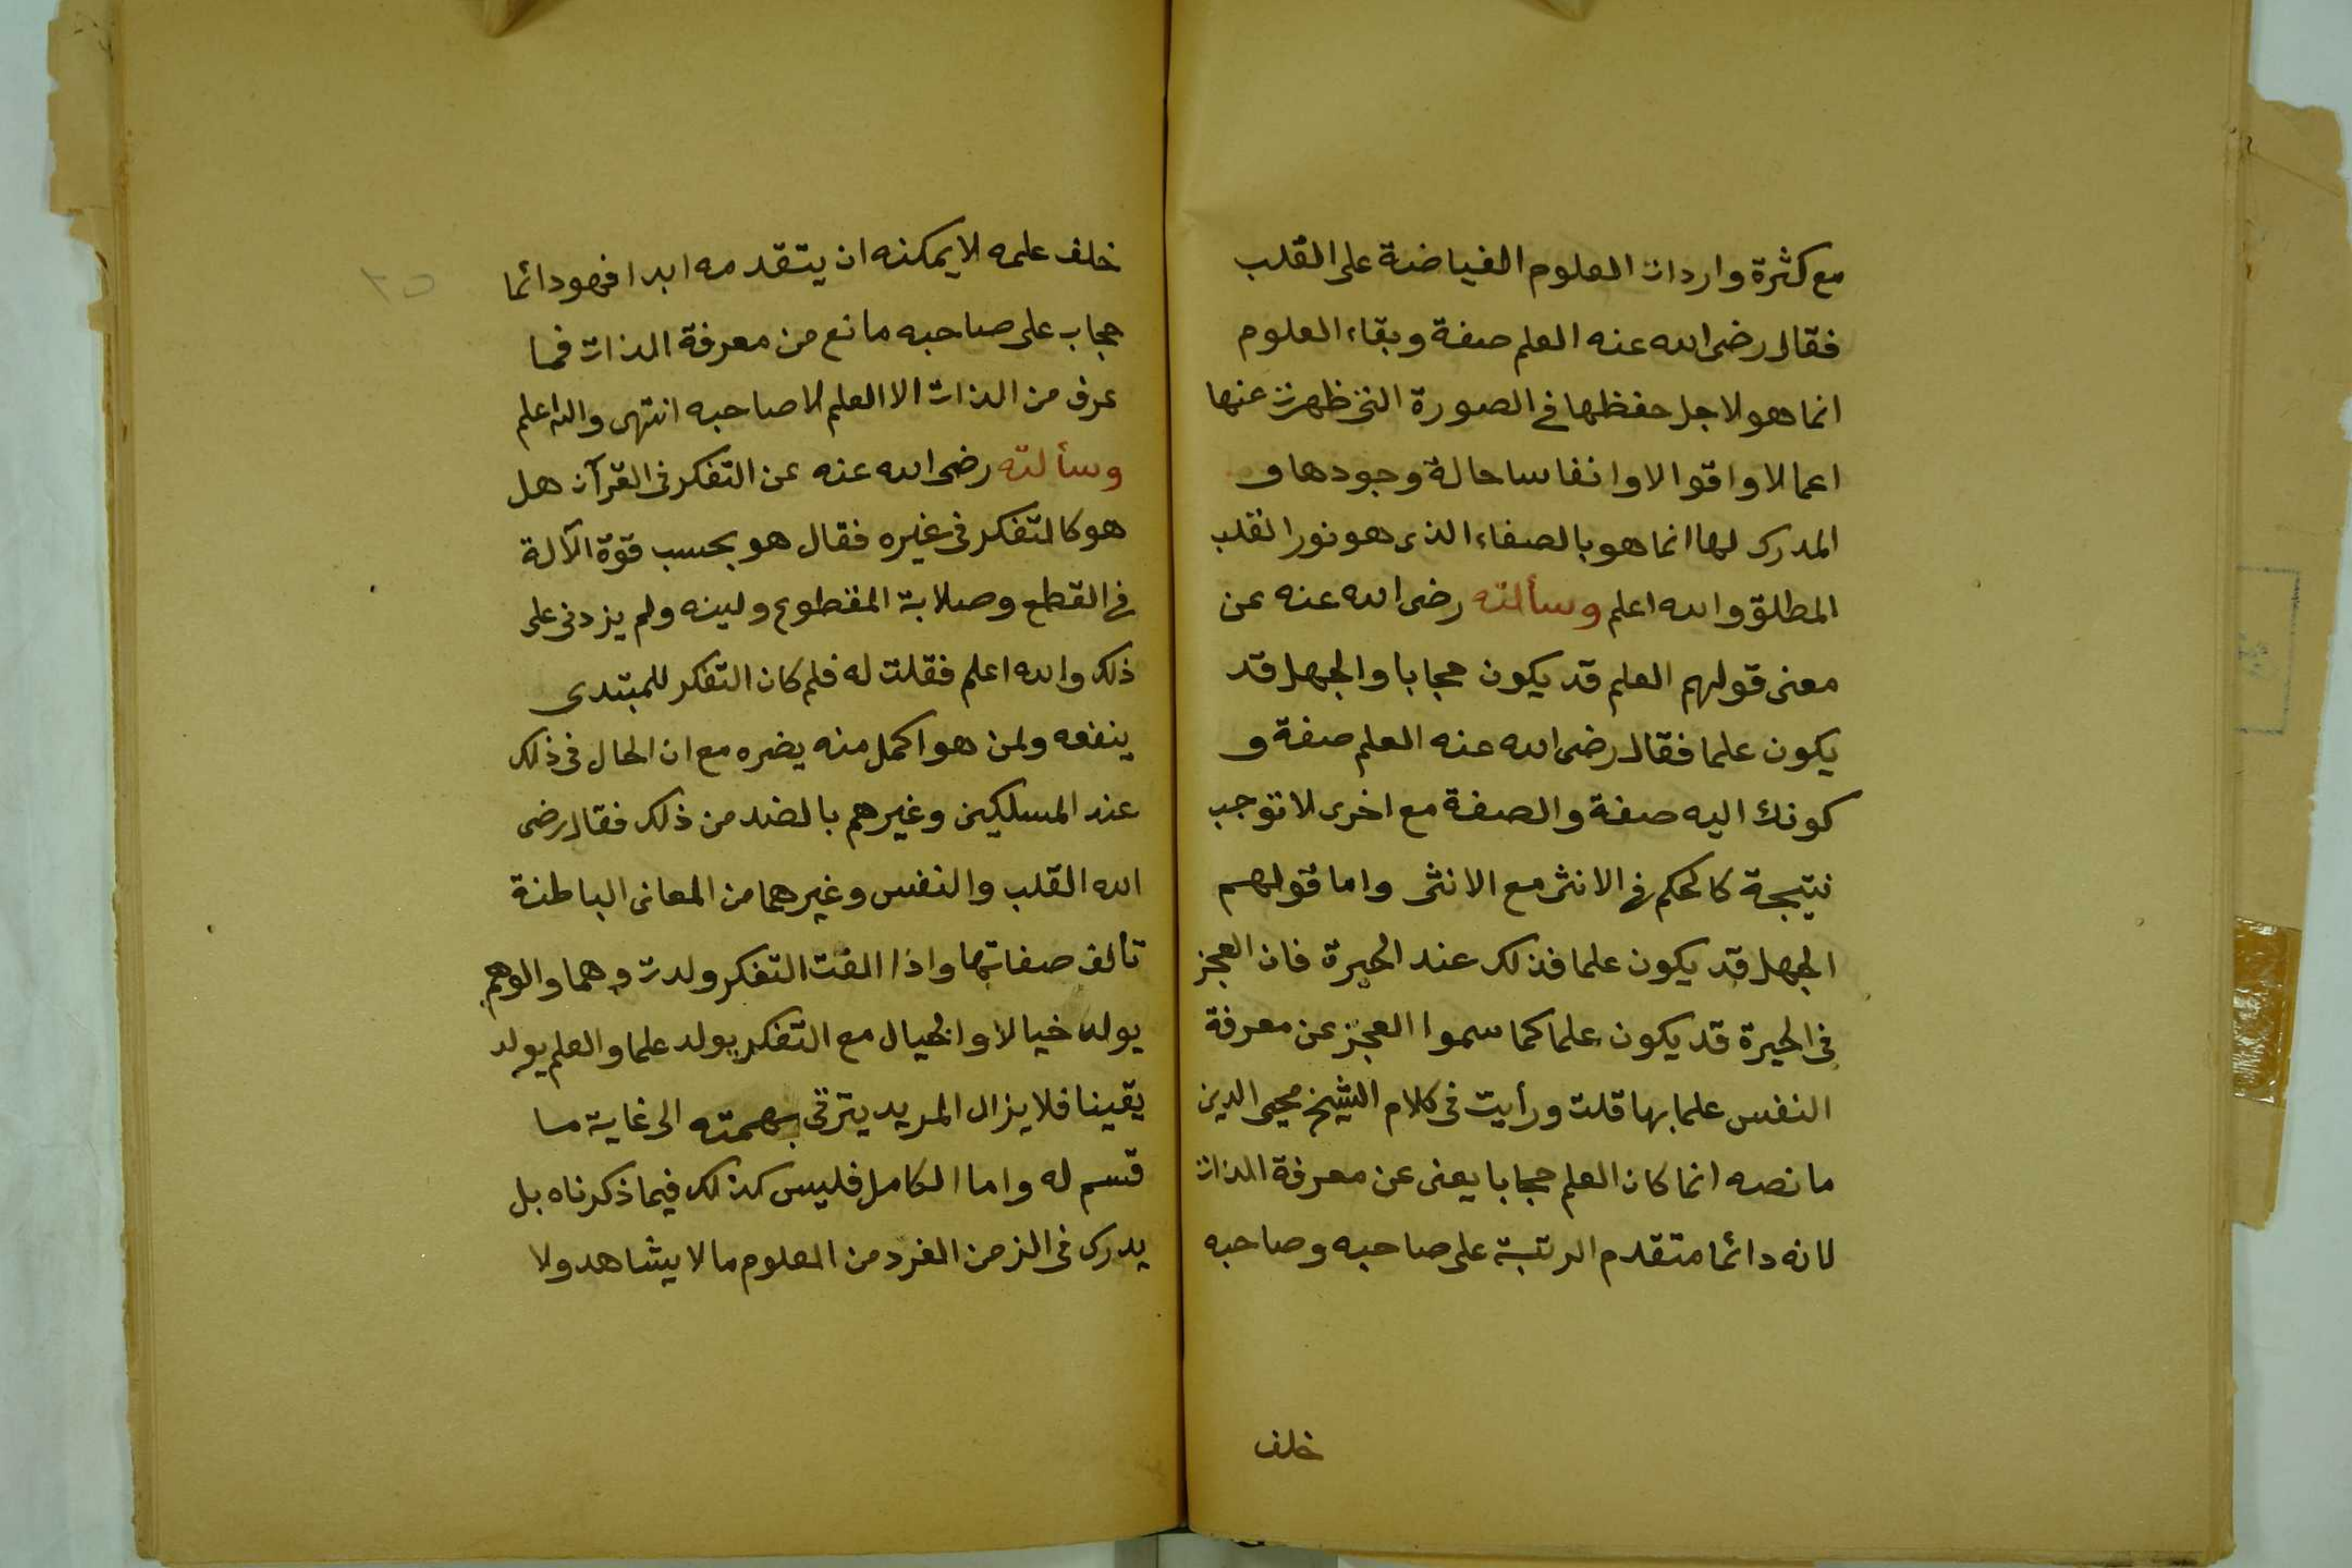 مع كثرة واردات العلوم الفياضة على القلب
فقال رضى الله عنه العلم صفة وبقاء العلوم
انما هو لاجل حفظها فى الصورة التى ظهرت عنها
اعمالا واقوالا وانفاسا حالة وجودها و
المدرك لها انما هو بالصفاء الذى هو نور القلب
المطلق والله اعلم وسألته رضى الله عنه عن
معنى قولهم العلم قد يكون حجابا والجهل قد
يكون علما فقال رضى الله عنه العلم صفة و
كونك اليه صفة والصفة مع اخرى لا توجب
نتيجة كالحكم فى الانثى مع الانثى واما قولهم
الجهل قد يكون علما فذلك عند الحيرة فان العجز
فى الحيرة قد يكون علما كما سموا العجز عن معرفة
النفس علما بها قلت ورأيت فى كلام الشيخ محيى الدين
ما نصه انما كان العلم حجابا يعنى عن معرفة الذات
لانه دائما متقدم الرتبة على صاحبه وصاحبه
خلف
خلف علمه لا يمكنه ان يتقدمه ابدا فهو دائما
حجاب على صاحبه مانع من معرفة الذات فما
عرف من الذات الا العلم لا صاحبه انتهى والله اعلم
وسألته رضى الله عنه عن التفكر فى القرآن هل
هو كالتفكر فى غيره فقال هو بحسب قوة الآلة
فى القطع وصلابة المقطوع ولينه ولم يزدنى على
ذلك والله اعلم فقلت له فلم كان التفكر للمبتدى
ينفعه ولمن هو اكمل منه يضره مع ان الحال فى ذلك
عند المسلكين وغيرهم بالضد من ذلك فقال رضى
الله القلب والنفس وغيرهما من المعانى الباطنة
تألف صفاتها واذا الفت التفكر ولدت وهما والوهم
يولد خيالا والخيال مع التفكر يولد علما والعلم يولد
يقينا فلا يزال المريد يترقى بهمته الى غاية ما
قسم له واما الكامل فليس كذلك فيما ذكرناه بل
يدرك فى الزمن الفرد من العلوم ما لا يشاهد ولا